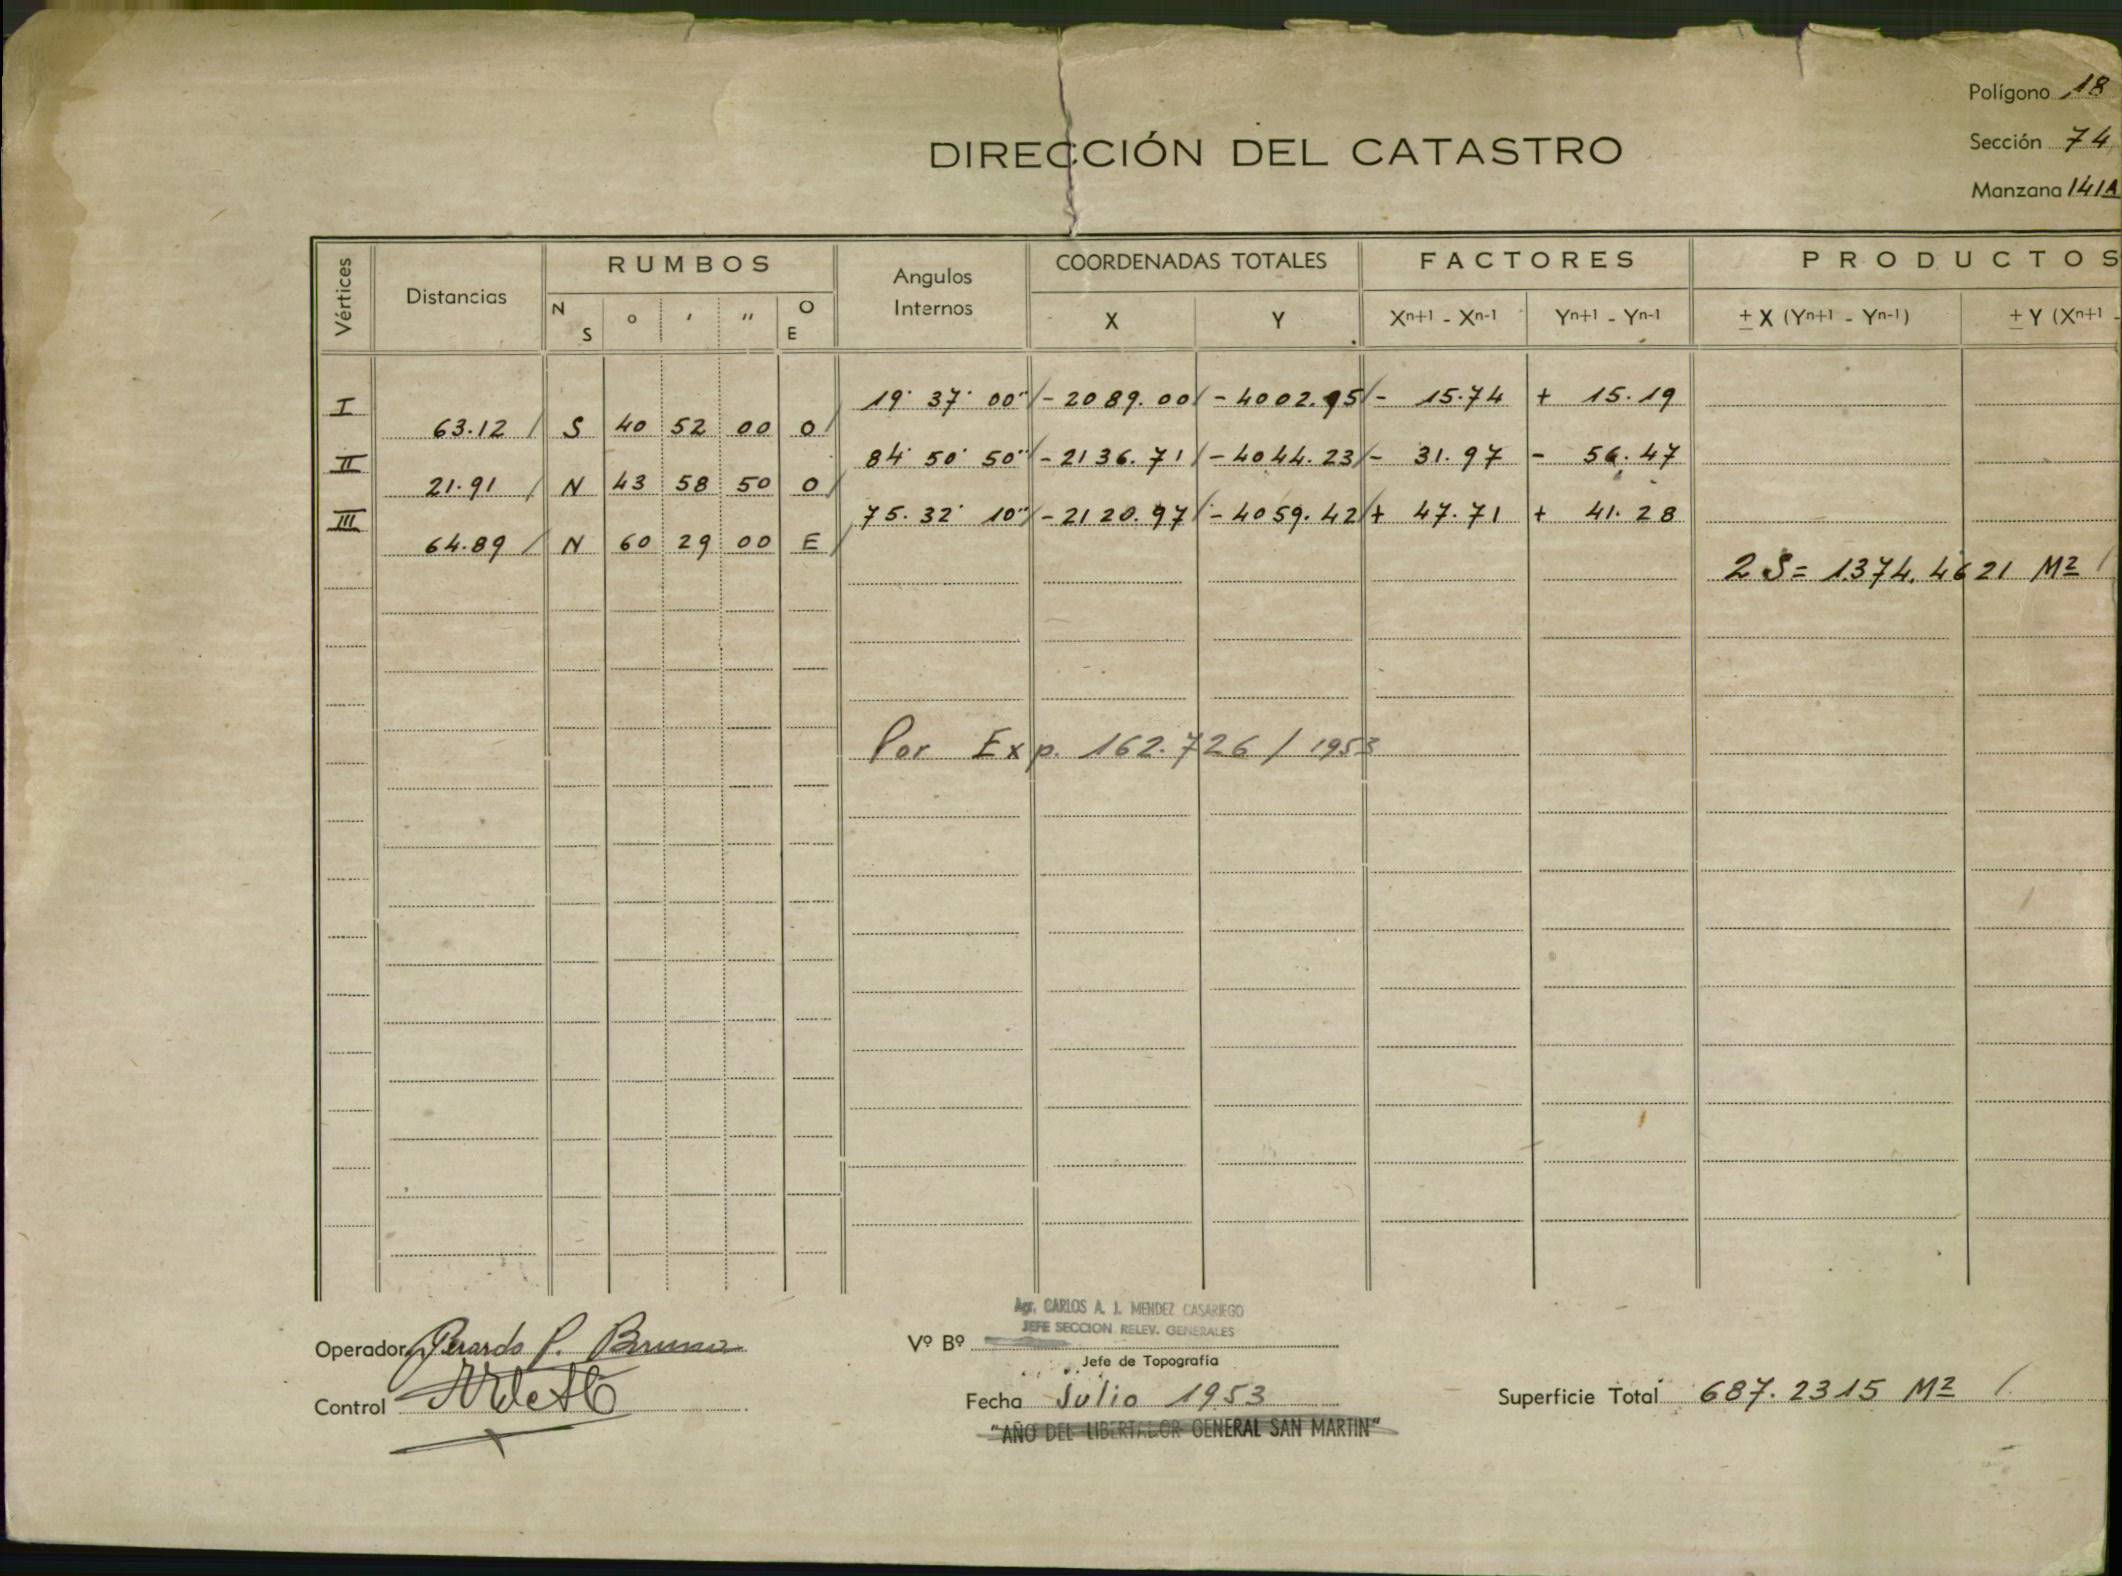 Polígono 18
DIRECCIÓN DEL CATASTRO
Sección 74
Manzana 141A
Vértices Distancias RUMBOS Angulos Internos COORDENADAS TOTALES FACTORES PRODUCTOS
N S o ′ ″ O E X Y Xn+1 - Xn-1 Yn+1 - Yn-1 ± X (Yn+1 - Yn-1) ± Y (Xn+1 -
I 19° 37' 00" - 2089.00 - 4002.95 - 15.74 + 15.19
63.12 S 40 52 00 O
II 84° 50' 50" - 2136.71 - 4044.23 - 31.97 - 56.47
21.91 N 43 58 50 O
III 75. 32' 10" - 2120.97 - 4059.42 + 47.71 + 41.28
64.89 N 60 29 00 E
2 S = 1374.4621 M2
Por Exp. 162.726 / 1953
Agr. CARLOS A. J. MENDEZ CASARIEGO
JEFE SECCION RELEV. GENERALES
Operador Gerardo P. Bruno
Vº Bº
Jefe de Topografía
Control
Fecha Julio 1953
Superficie Total 687.2315 M2
"AÑO DEL LIBERTADOR GENERAL SAN MARTIN"